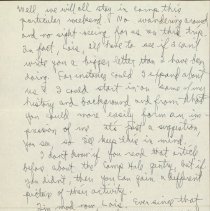 Well we will all stay in camp this
particular weekend. No wandering around
and no sight seeing for us on this trip
In fact, Lois, I'll have to see if I can't
write you a bigger letter than I have been
doing. For instance could I expand about
us I could start in on some of my
history and background and from that
you could more easily form an im-
pression of me. It's just a suggestion
you say, so I'll keep this in mind.
I don't know if you read that article
before about the Camp Holy Family but if
you didn't, then you can gain a different
picture of their activity.
Lois Ever since that